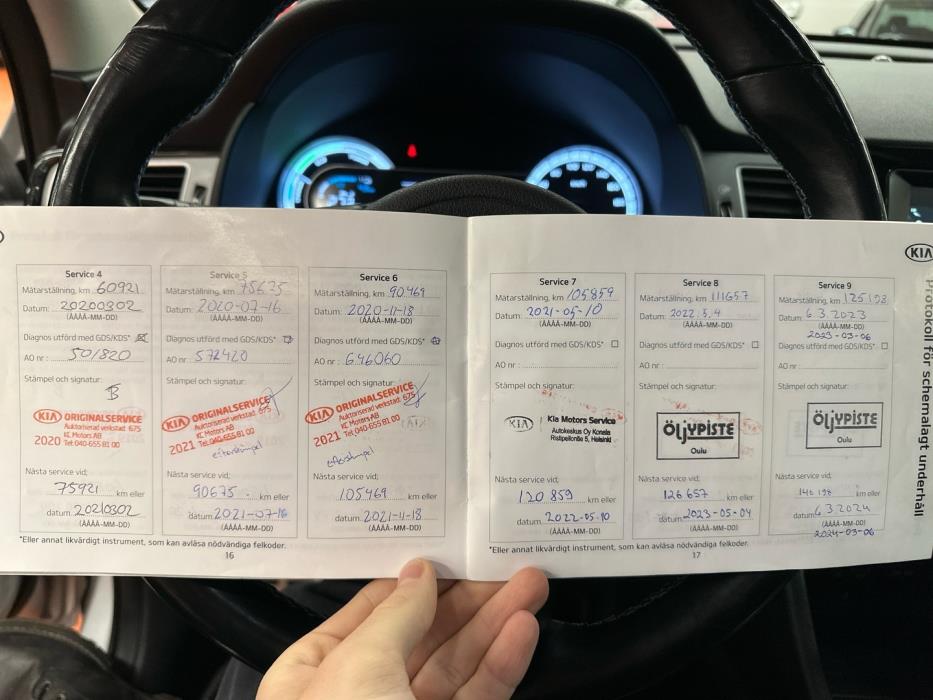 Service 4
Mätarställning, km 60921
Datum: 20200302
(ÅÅÅÅ-MM-DD)
Diagnos utförd med GDS/KDS*
AO nr: 501820
Stämpel och signatur:
KIA ORIGINALSERVICE
Auktoriserad verkstad 675
KC Motors AB
2020 Tel. 040-655 81 00
Nästa service vid:
75921 km eller
datum: 20210302
(ÅÅÅÅ-MM-DD)
Service 5
Mätarställning, km 75675
Datum: 2020-07-16
(ÅÅÅÅ-MM-DD)
Diagnos utförd med GDS/KDS*
AO nr: 572420
Stämpel och signatur:
KIA ORIGINALSERVICE
Auktoriserad verkstad 675
KC Motors AB
2021 Tel. 040-655 81 00
efterstämpel
Nästa service vid:
90675 km eller
datum: 2021-07-16
(ÅÅÅÅ-MM-DD)
Service 6
Mätarställning, km 90469
Datum: 2020-11-18
(ÅÅÅÅ-MM-DD)
Diagnos utförd med GDS/KDS*
AO nr: 646060
Stämpel och signatur:
KIA ORIGINALSERVICE
Auktoriserad verkstad 675
KC Motors AB
2021 Tel. 040-655 81 00
efterstämpel
Nästa service vid:
105469 km eller
datum: 2021-11-18
(ÅÅÅÅ-MM-DD)
*Eller annat likvärdigt instrument, som kan avläsa nödvändiga felkoder.
16
KIA
Protokoll för schemalagt underhåll
Service 7
Mätarställning, km 105859
Datum: 2021-05-10
(ÅÅÅÅ-MM-DD)
Diagnos utförd med GDS/KDS*
AO nr:
Stämpel och signatur:
KIA Kia Motors Service
Autokeskus Oy Konala
Ristipellontie 5, Helsinki
Nästa service vid:
120859 km eller
datum: 2022-05-10
(ÅÅÅÅ-MM-DD)
Service 8
Mätarställning, km 111657
Datum: 2022.5.4
(ÅÅÅÅ-MM-DD)
Diagnos utförd med GDS/KDS*
AO nr:
Stämpel och signatur:
ÖLJYPISTE
Oulu
Nästa service vid:
126657 km eller
datum: 2023-05-04
(ÅÅÅÅ-MM-DD)
Service 9
Mätarställning, km 125198
Datum: 6.3.2023
(ÅÅÅÅ-MM-DD)
2023-03-06
Diagnos utförd med GDS/KDS*
AO nr:
Stämpel och signatur:
ÖLJYPISTE
Oulu
Nästa service vid:
140198 km eller
datum: 6.3.2024
(ÅÅÅÅ-MM-DD)
2024-03-06
*Eller annat likvärdigt instrument, som kan avläsa nödvändiga felkoder.
17